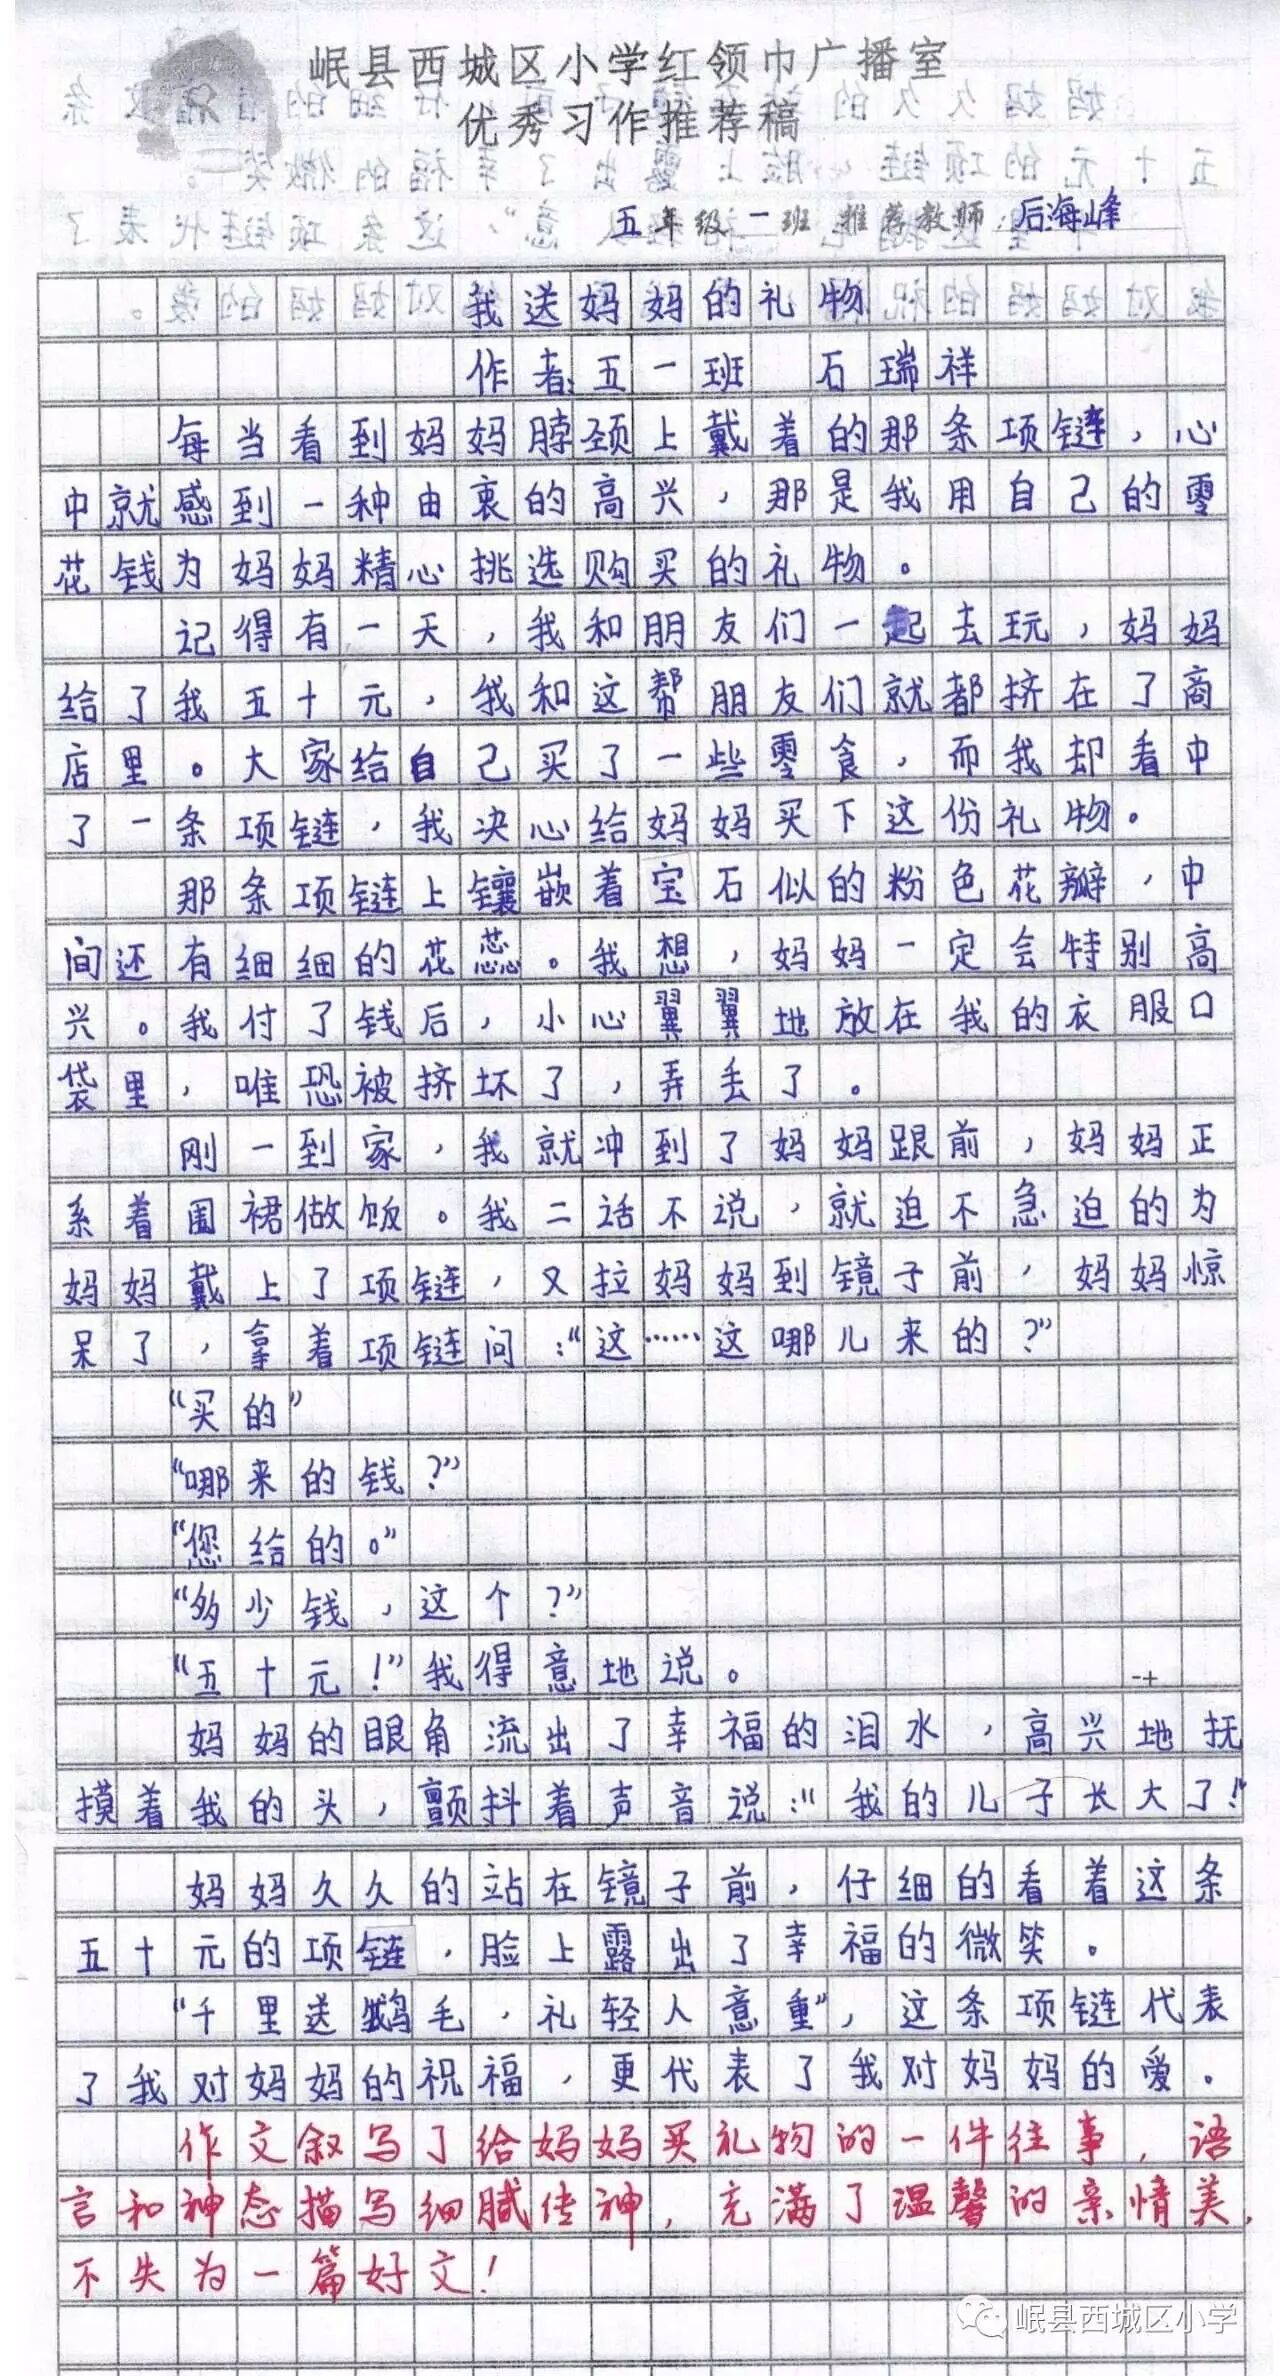 岷县西城区小学红领巾广播室
优秀习作推荐稿
五年级一班 推荐教师:后海峰
我送妈妈的礼物
作者:五一班 石瑞祥
每当看到妈妈脖颈上戴着的那条项链,心
中就感到一种由衷的高兴,那是我用自己的零
花钱为妈妈精心挑选购买的礼物。
记得有一天,我和朋友们一起去玩,妈妈
给了我五十元,我和这帮朋友们就都挤在了商
店里。大家给自己买了一些零食,而我却看中
了一条项链,我决心给妈妈买下这份礼物。
那条项链上镶嵌着宝石似的粉色花瓣,中
间还有细细的花蕊。我想,妈妈一定会特别高
兴。我付了钱后,小心翼翼地放在我的衣服口
袋里,唯恐被挤坏了,弄丢了。
刚一到家,我就冲到了妈妈跟前,妈妈正
系着围裙做饭。我二话不说,就迫不急迫的为
妈妈戴上了项链,又拉妈妈到镜子前,妈妈惊
呆了,拿着项链问:“这……这哪儿来的?”
“买的”
“哪来的钱?”
“您给的。”
“多少钱,这个?”
“五十元!”我得意地说。
妈妈的眼角流出了幸福的泪水,高兴地抚
摸着我的头,颤抖着声音说:“我的儿子长大了!”
妈妈久久的站在镜子前,仔细的看着这条
五十元的项链,脸上露出了幸福的微笑。
“千里送鹅毛,礼轻人意重”,这条项链代表
了我对妈妈的祝福,更代表了我对妈妈的爱。
作文叙写了给妈妈买礼物的一件往事,语
言和神态描写细腻传神,充满了温馨的亲情美,
不失为一篇好文!
岷县西城区小学